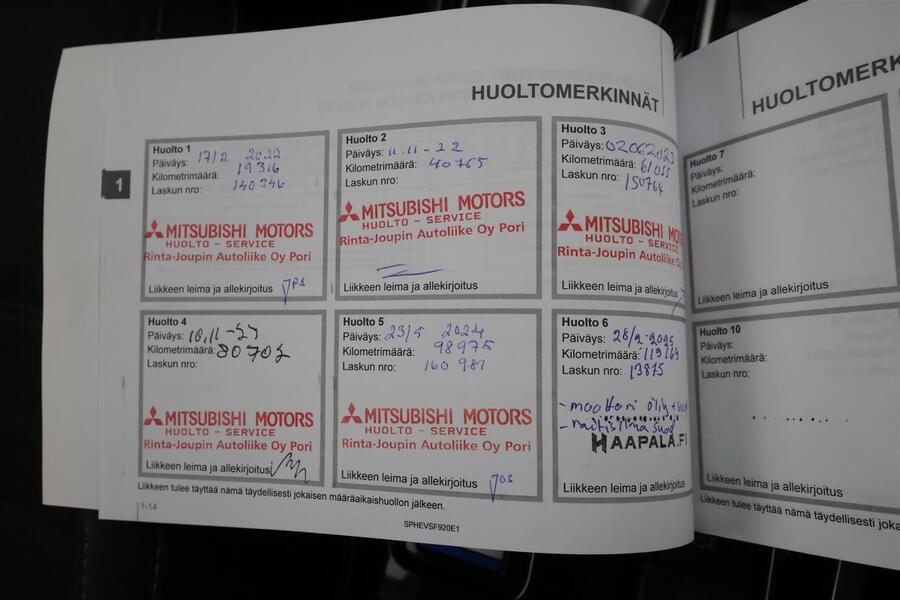 HUOLTOMERKINNÄT
Huolto 1
Päiväys: 17/2 2022
Kilometrimäärä: 19316
Laskun nro: 140346
MITSUBISHI MOTORS
HUOLTO - SERVICE
Rinta-Joupin Autoliike Oy Pori
Liikkeen leima ja allekirjoitus
Huolto 2
Päiväys: 11.11-22
Kilometrimäärä: 40765
Laskun nro:
MITSUBISHI MOTORS
HUOLTO - SERVICE
Rinta-Joupin Autoliike Oy Pori
Liikkeen leima ja allekirjoitus
Huolto 3
Päiväys: 02062023
Kilometrimäärä: 61055
Laskun nro: 150764
MITSUBISHI MO
HUOLTO - SERVICE
Rinta-Joupin Autoliike O
Liikkeen leima ja allekirjoitus
Huolto 4
Päiväys: 10,11-23
Kilometrimäärä: 80703
Laskun nro:
MITSUBISHI MOTORS
HUOLTO - SERVICE
Rinta-Joupin Autoliike Oy Pori
Liikkeen leima ja allekirjoitus
Huolto 5
Päiväys: 23/5 2024
Kilometrimäärä: 98975
Laskun nro: 160981
MITSUBISHI MOTORS
HUOLTO - SERVICE
Rinta-Joupin Autoliike Oy Pori
Liikkeen leima ja allekirjoitus
Huolto 6
Päiväys: 28/2-2025
Kilometrimäärä: 119169
Laskun nro: 13875
- moottori öljy +
- raitisilma suod
HAAPALA.FI
Liikkeen leima ja allekirjoitus
Liikkeen tulee täyttää nämä täydellisesti jokaisen määräaikaishuollon jälkeen.
1-14
SPHEVSF920E1
1
HUOLTOMERK
Huolto 7
Päiväys:
Kilometrimäärä:
Laskun nro:
Liikkeen leima ja allekirjoitus
Huolto 10
Päiväys:
Kilometrimäärä:
Laskun nro:
Liikkeen leima ja allekirjoitus
Liikkeen tulee täyttää nämä täydellisesti joka